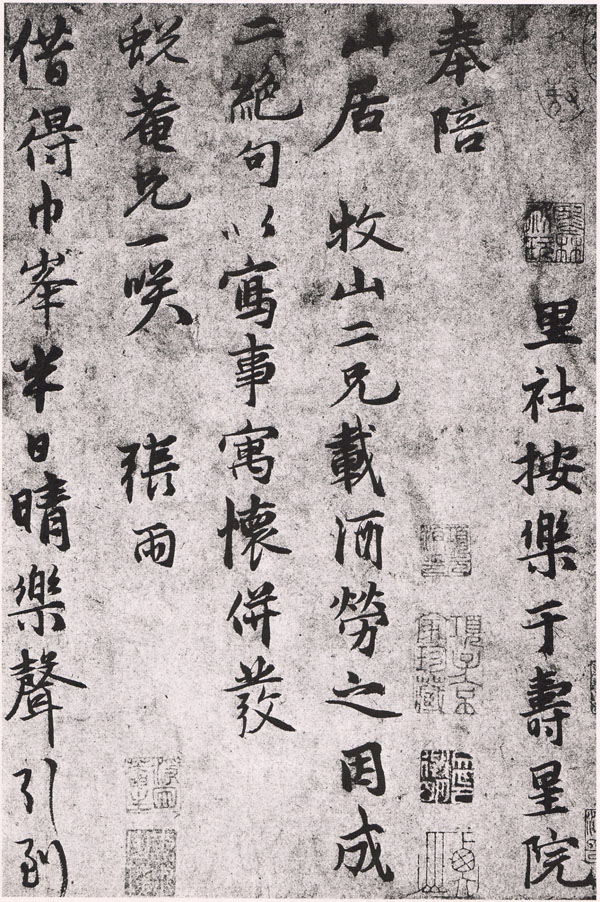 奉陪
里社按樂于壽星院
山居 牧山二兄載酒勞之因成
二絕句以寫事寓懷併發
蛻菴兄一咲 張雨
借得巾峯半日晴樂聲引到